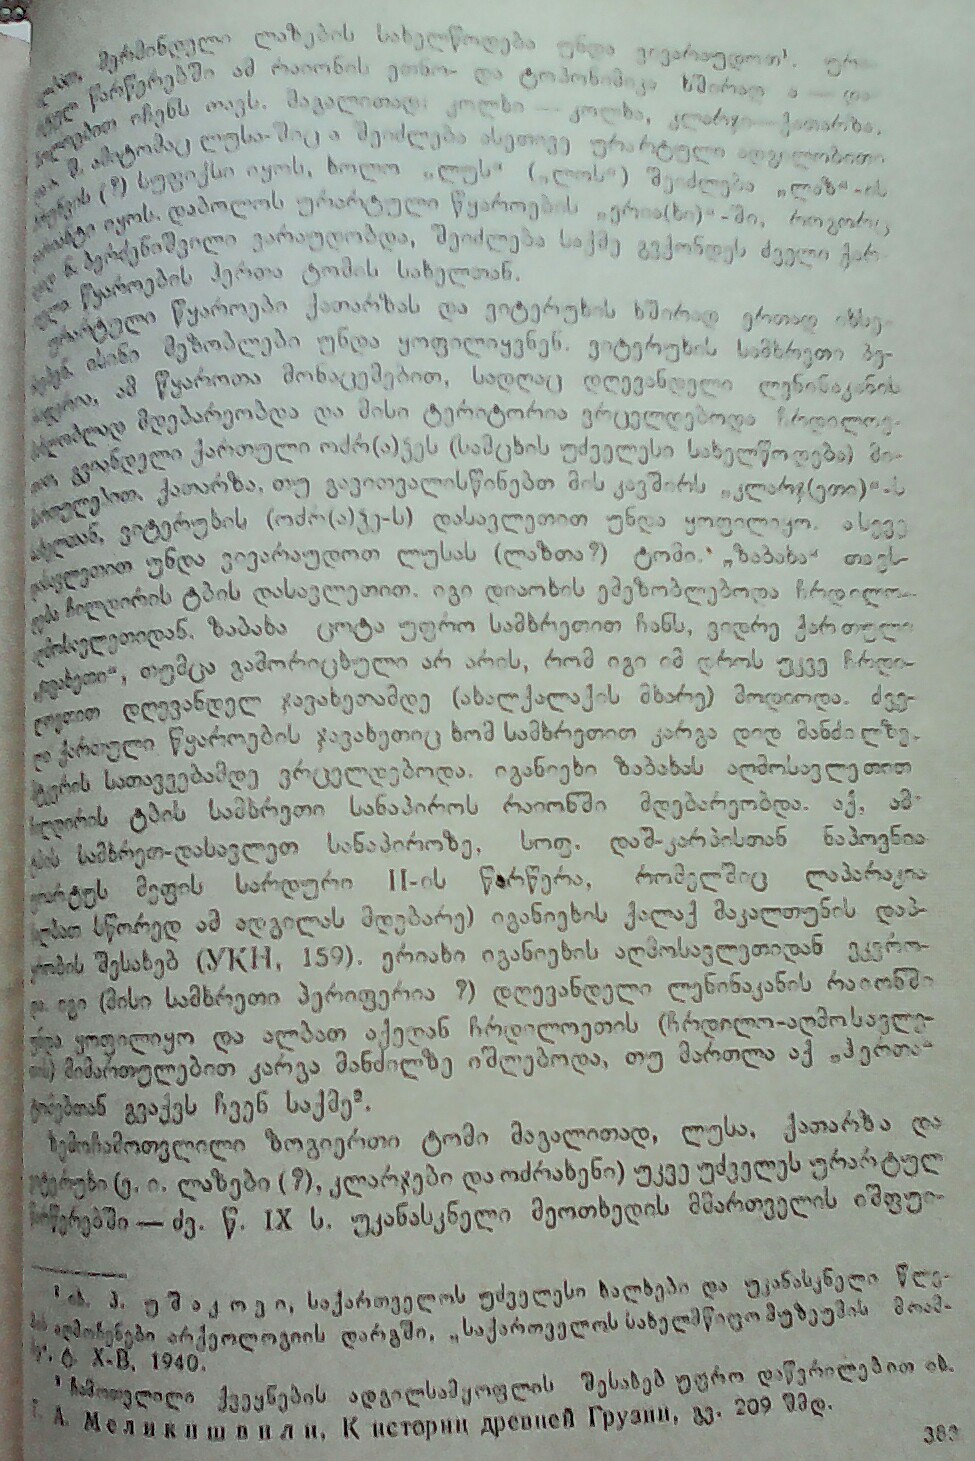 მერმინდელი ლაზების სახელწოდება უნდა ვივარაუდოთ¹.
წარწერებში ამ რაიონის ეთნო- და ტოპონიმიკა ხშირად ა —
იჩენს თავს. მაგალითად: კოლხი — კოლხა, კლარჯი—ქათარზა.
შ. ამიტომაც ლუსა-შიც ა შეიძლება ასეთივე ურარტული ადგილობითი
(?) სუფიქსი იყოს, ხოლო „ლუს“ („ლოს“) შეიძლება „ლაზ“-ის
იყოს. დაბოლოს ურარტული წყაროების „ერია(ხი)“-ში, როგორც
ნ. ბერძენიშვილი ვარაუდობდა, შეიძლება საქმე გვქონდეს ძველი ქარ-
წყაროების ჰერთა ტომის სახელთან.
ურარტული წყაროები ქათარზას და ვიტერუხის ხშირად ერთად იხსე-
ისინი მეზობლები უნდა ყოფილიყვნენ. ვიტერუხის სამხრეთი პე-
ამ წყაროთა მონაცემებით, სადღაც დღევანდელი ლენინაკანის
მდებარეობდა და მისი ტერიტორია ვრცელდებოდა ჩრდილოე-
გვიანდელი ქართული ოძრ(ა)ჴეს (სამცხის უძველესი სახელწოდება) მი-
ქათარზა, თუ გავითვალისწინებთ მის კავშირს „კლარჯ(ეთი)“-ს
ვიტერუხის (ოძრ(ა)ჴე-ს) დასავლეთით უნდა ყოფილიყო. ასევე
უნდა ვივარაუდოთ ლუსას (ლაზთა?) ტომი. „ზაბახა“ თავს-
ჩილდირის ტბის დასავლეთით. იგი დიაოხის ემეზობლებოდა ჩრდილო-
ზაბახა ცოტა უფრო სამხრეთით ჩანს, ვიდრე ქართული
თუმცა გამორიცხული არ არის, რომ იგი იმ დროს უკვე ჩრდი-
ლოეთით დღევანდელ ჯავახეთამდე (ახალქალაქის მხარე) მოდიოდა. ძვე-
ლი ქართული წყაროების ჯავახეთიც ხომ სამხრეთით კარგა დიდ მანძილზე,
მტკვრის სათავეებამდე ვრცელდებოდა. იგანიეხი ზაბახას აღმოსავლეთით
ჩილდირის ტბის სამხრეთი სანაპიროს რაიონში მდებარეობდა. აქ, ამ
ტბის სამხრეთ-დასავლეთ სანაპიროზე, სოფ. დაშ-კარპისთან ნაპოვნია
ურარტუს მეფის სარდური II-ის წარწერა, რომელშიც ლაპარაკია
სწორედ ამ ადგილას მდებარე) იგანიეხის ქალაქ მაკალთუნის დაპ-
ყრობის შესახებ (УКН, 159). ერიახი იგანიეხის აღმოსავლეთიდან ეკვრო-
და. იგი (მისი სამხრეთი პერიფერია ?) დღევანდელი ლენინაკანის რაიონში
უნდა ყოფილიყო და ალბათ აქედან ჩრდილოეთის (ჩრდილო-აღმოსავლე-
თის) მიმართულებით კარგა მანძილზე იშლებოდა, თუ მართლა აქ „ჰერთა“
ტომებთან გვაქვს ჩვენ საქმე².
ზემოჩამოთვლილი ზოგიერთი ტომი მაგალითად, ლუსა, ქათარზა და
ვიტერუხი (ე. ი. ლაზები (?), კლარჯები და ოძრახენი) უკვე უძველეს ურარტულ
წარწერებში — ძვ. წ. IX ს. უკანასკნელი მეოთხედის მმართველის იშფუი-
¹ იხ. პ. უშაკოვი, საქართველოს უძველესი ხალხები და უკანასკნელი წლე-
ბის აღმოჩენები არქეოლოგიის დარგში, „საქართველოს სახელმწიფო მუზეუმის მოამ-
ბე“, ტ. X-B, 1940.
² ჩამოთვლილი ქვეყნების ადგილსამყოფლის შესახებ უფრო დაწვრილებით იხ.
Г. А. Меликишвили, К истории древней Грузии, გვ. 209 შმდ.
383